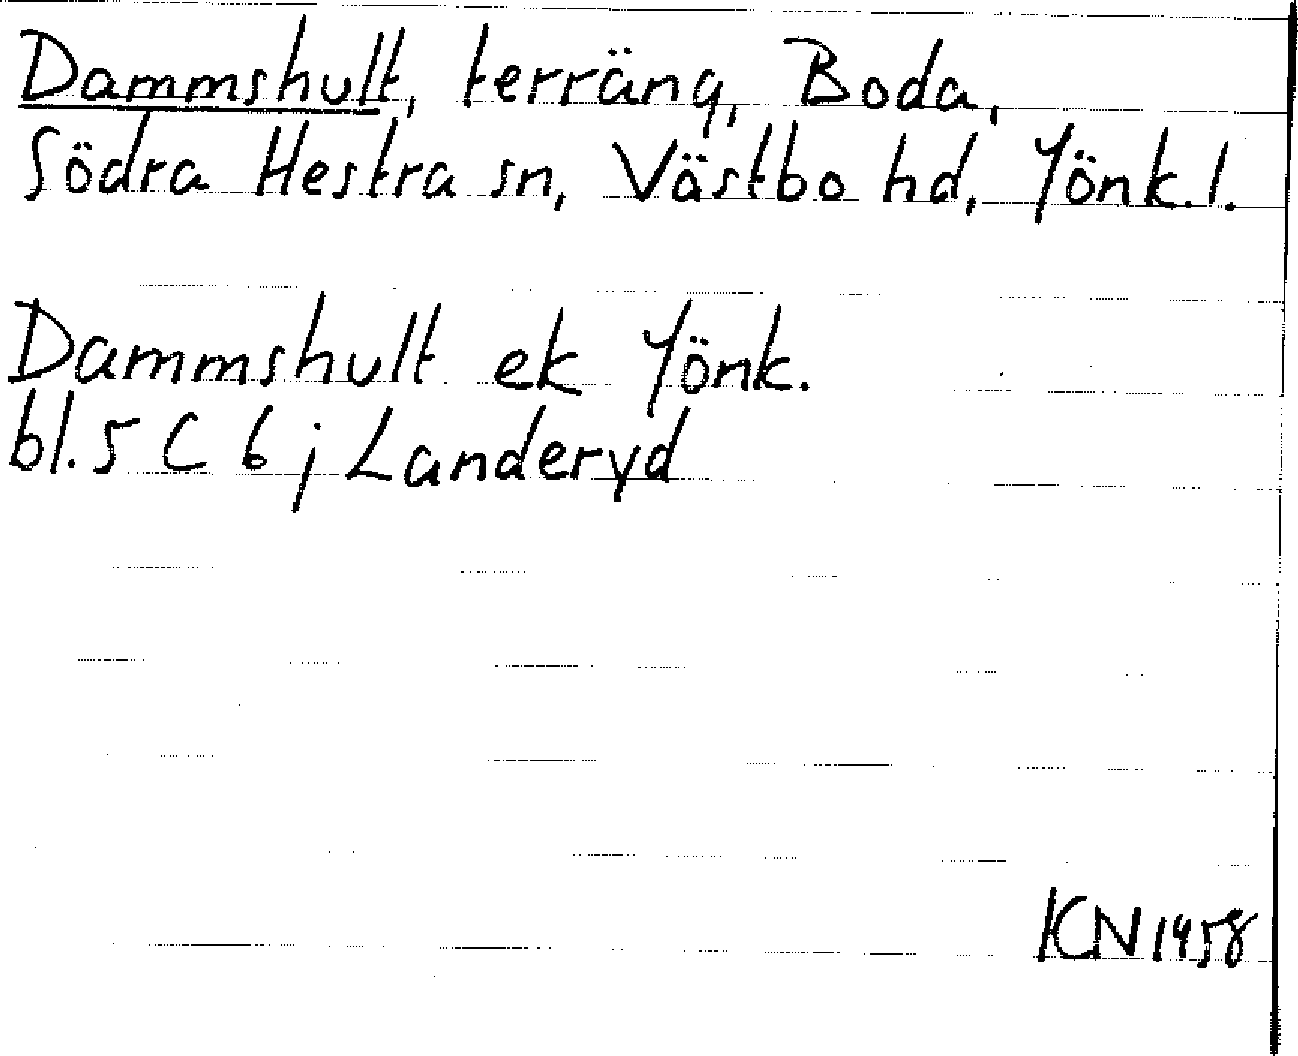 Dammshult, terräng, Boda,
Södra Hestra sn, Västbo hd, Jönk.l.
Dammshult ek Jönk.
bl. 5 C 6 j Landeryd
KN 1958